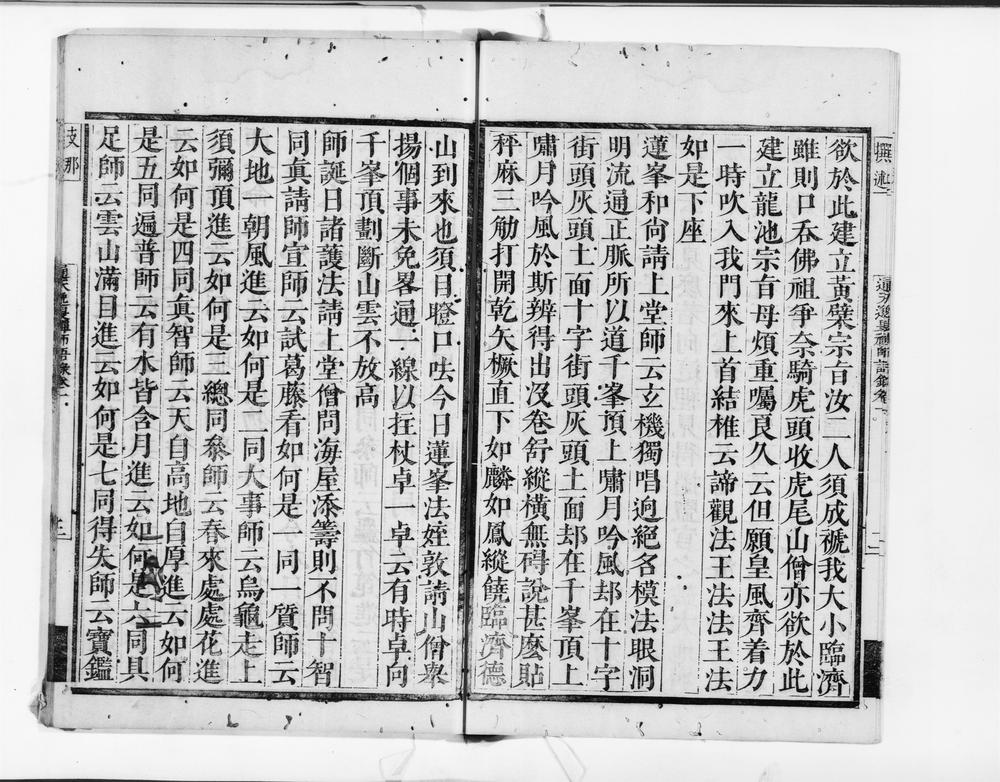 撰述
欲於此建立黃檗宗旨汝二人須成褫我大小臨濟
雖則口吞佛祖爭奈騎虎頭收虎尾山僧亦欲於此
建立龍池宗旨毋煩重囑良久云但願皇風齊着力
一時吹入我門來上首結椎云諦觀法王法法王法
如是下座
蓮峯和尚請上堂師云玄機獨唱迥絕名模法眼洞
明流通正脈所以道千峯頂上嘯月吟風却在十字
街頭灰頭土面十字街頭灰頭土面却在千峯頂上
嘯月吟風於斯辨得出沒卷舒縱橫無碍說甚麼貼
秤麻三觔打開乾矢橛直下如麟如鳳縱饒臨濟德
山到來也須目瞪口呿今日蓮峯法姪敦請山僧舉
揚個事未免畧通一線以拄杖卓一卓云有時卓向
千峯頂劃斷山雲不放高
師誕日諸護法請上堂僧問海屋添籌則不問十智
同真請師宣師云試葛藤看如何是一同一質師云
大地一朝風進云如何是二同大事師云烏龜走上
須彌頂進云如何是三總同參師云春來處處花進
云如何是四同真智師云天自高地自厚進云如何
是五同遍普師云有水皆含月進云如何是六同具
足師云雲山滿目進云如何是七同得失師云寶鑑
支那